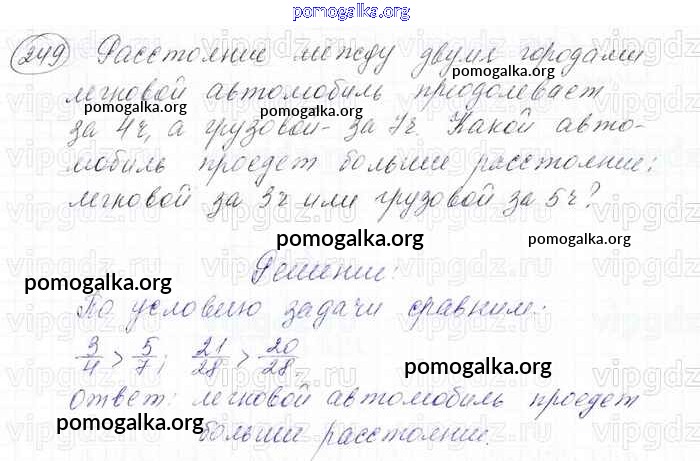 pomogalka.org
249 Расстояние между двумя городами
pomogalka.org
легковой автомобиль преодолевает
pomogalka.org
pomogalka.org
за 4ч, а грузовой - за 7ч. Какой авто-
мобиль проедет больше расстояние:
легковой за 3ч или грузовой за 5ч?
pomogalka.org
pomogalka.org
Решение:
pomogalka.org
По условию задачи сравним:
3/4 > 5/7; 21/28 > 20/28.
pomogalka.org
Ответ: легковой автомобиль проедет
больше расстояние.
pomogalka.org
vipgdz.ru